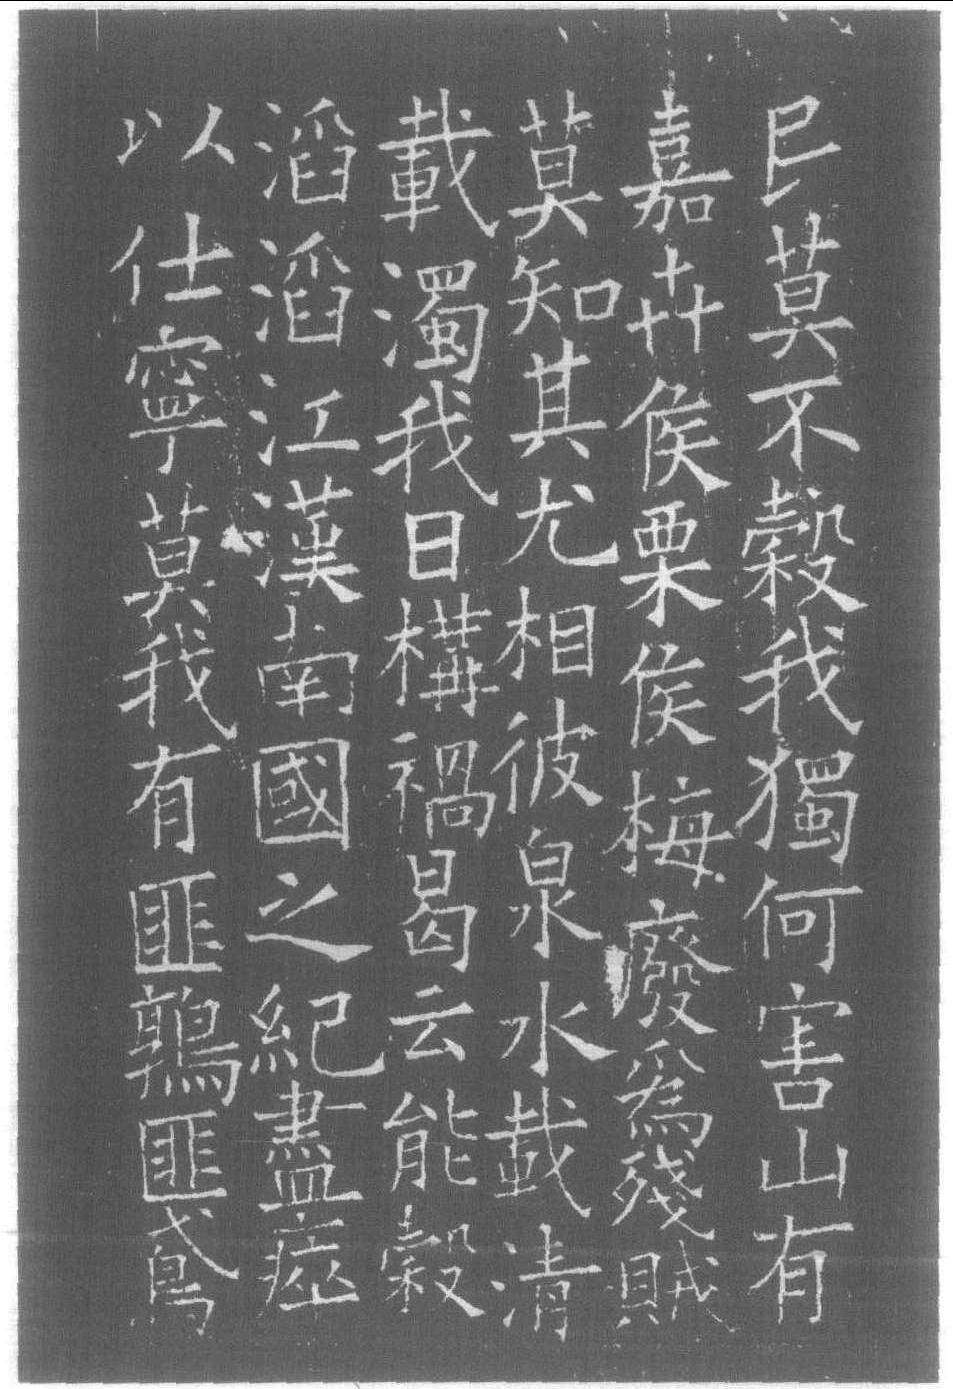 民莫不穀我獨何害山有
嘉卉侯栗侯梅廢爲殘賊
莫知其尤相彼泉水載清
載濁我日構禍曷云能穀
滔滔江漢南國之紀盡瘁
以仕寧莫我有匪鶉匪鳶